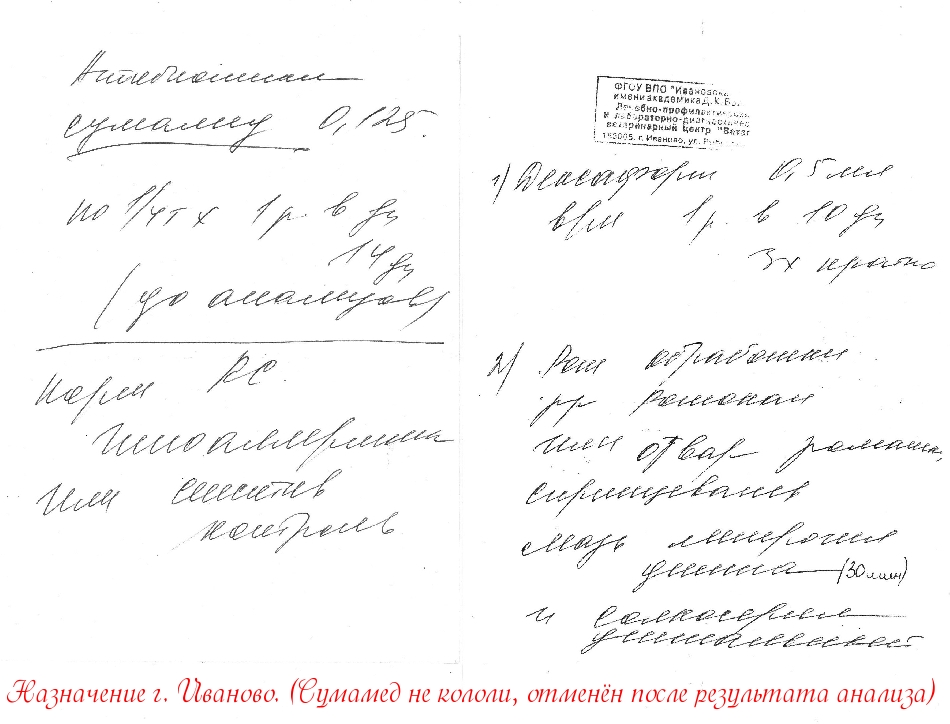 Антибиотики
сумамед 0,125.
по 1/4т х 1 р. в дн
14 дн
(до анализов)
Корм RC.
гипоаллерген
или сенситив
контроль
ФГОУ ВПО "Ивановска
имени академика Д. К. Бе
Лечебно-профилактическ
и лабораторно-диагностичес
ветеринарный центр "Ветас
153065, г. Иваново, ул.
1) Дексафорт 0,5 мл
в/м 1 р. в 10 дн
3х кратно
2) Рот обработки
рр Ротокан
или отвар ромашки,
спринцевание
мазь метрогил
дента (30 мин)
и солкосерил
дентальный
Назначение г. Иваново. (Сумамед не кололи, отменён после результата анализа)